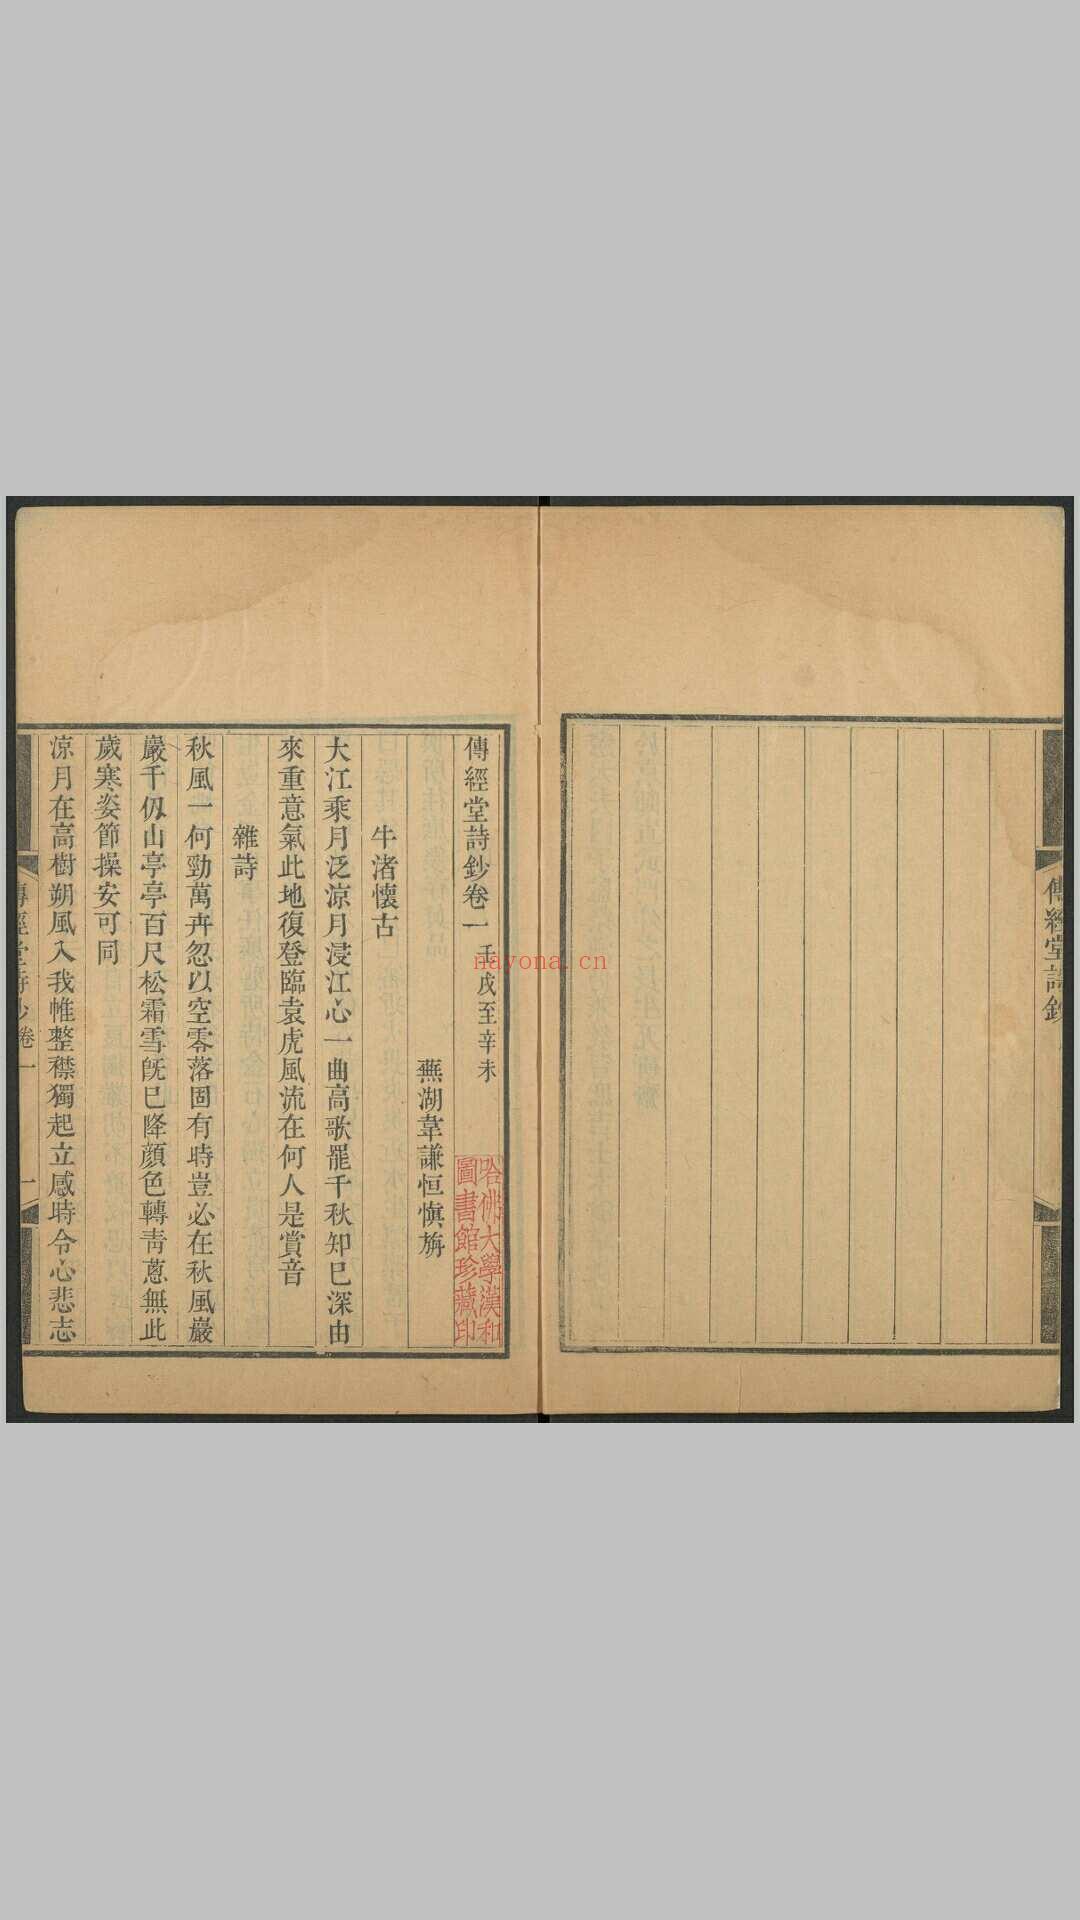 傳經堂詩鈔
傳經堂詩鈔卷一 壬戌至辛未
蕪湖韋謙恒慎旃
牛渚懷古
大江乘月泛涼月浸江心一曲高歌罷千秋知已深由
來重意氣此地復登臨袁虎風流在何人是賞音
雜詩
秋風一何勁萬卉忽以空零落固有時豈必在秋風巖
巖千仭山亭亭百尺松霜雪旣已降顔色轉靑蔥無此
歲寒姿節操安可同
涼月在高樹朔風入我帷整襟獨起立感時令心悲志
傳經堂詩鈔卷一
一
哈佛大學漢和
圖書館珍藏印
nayona.cn